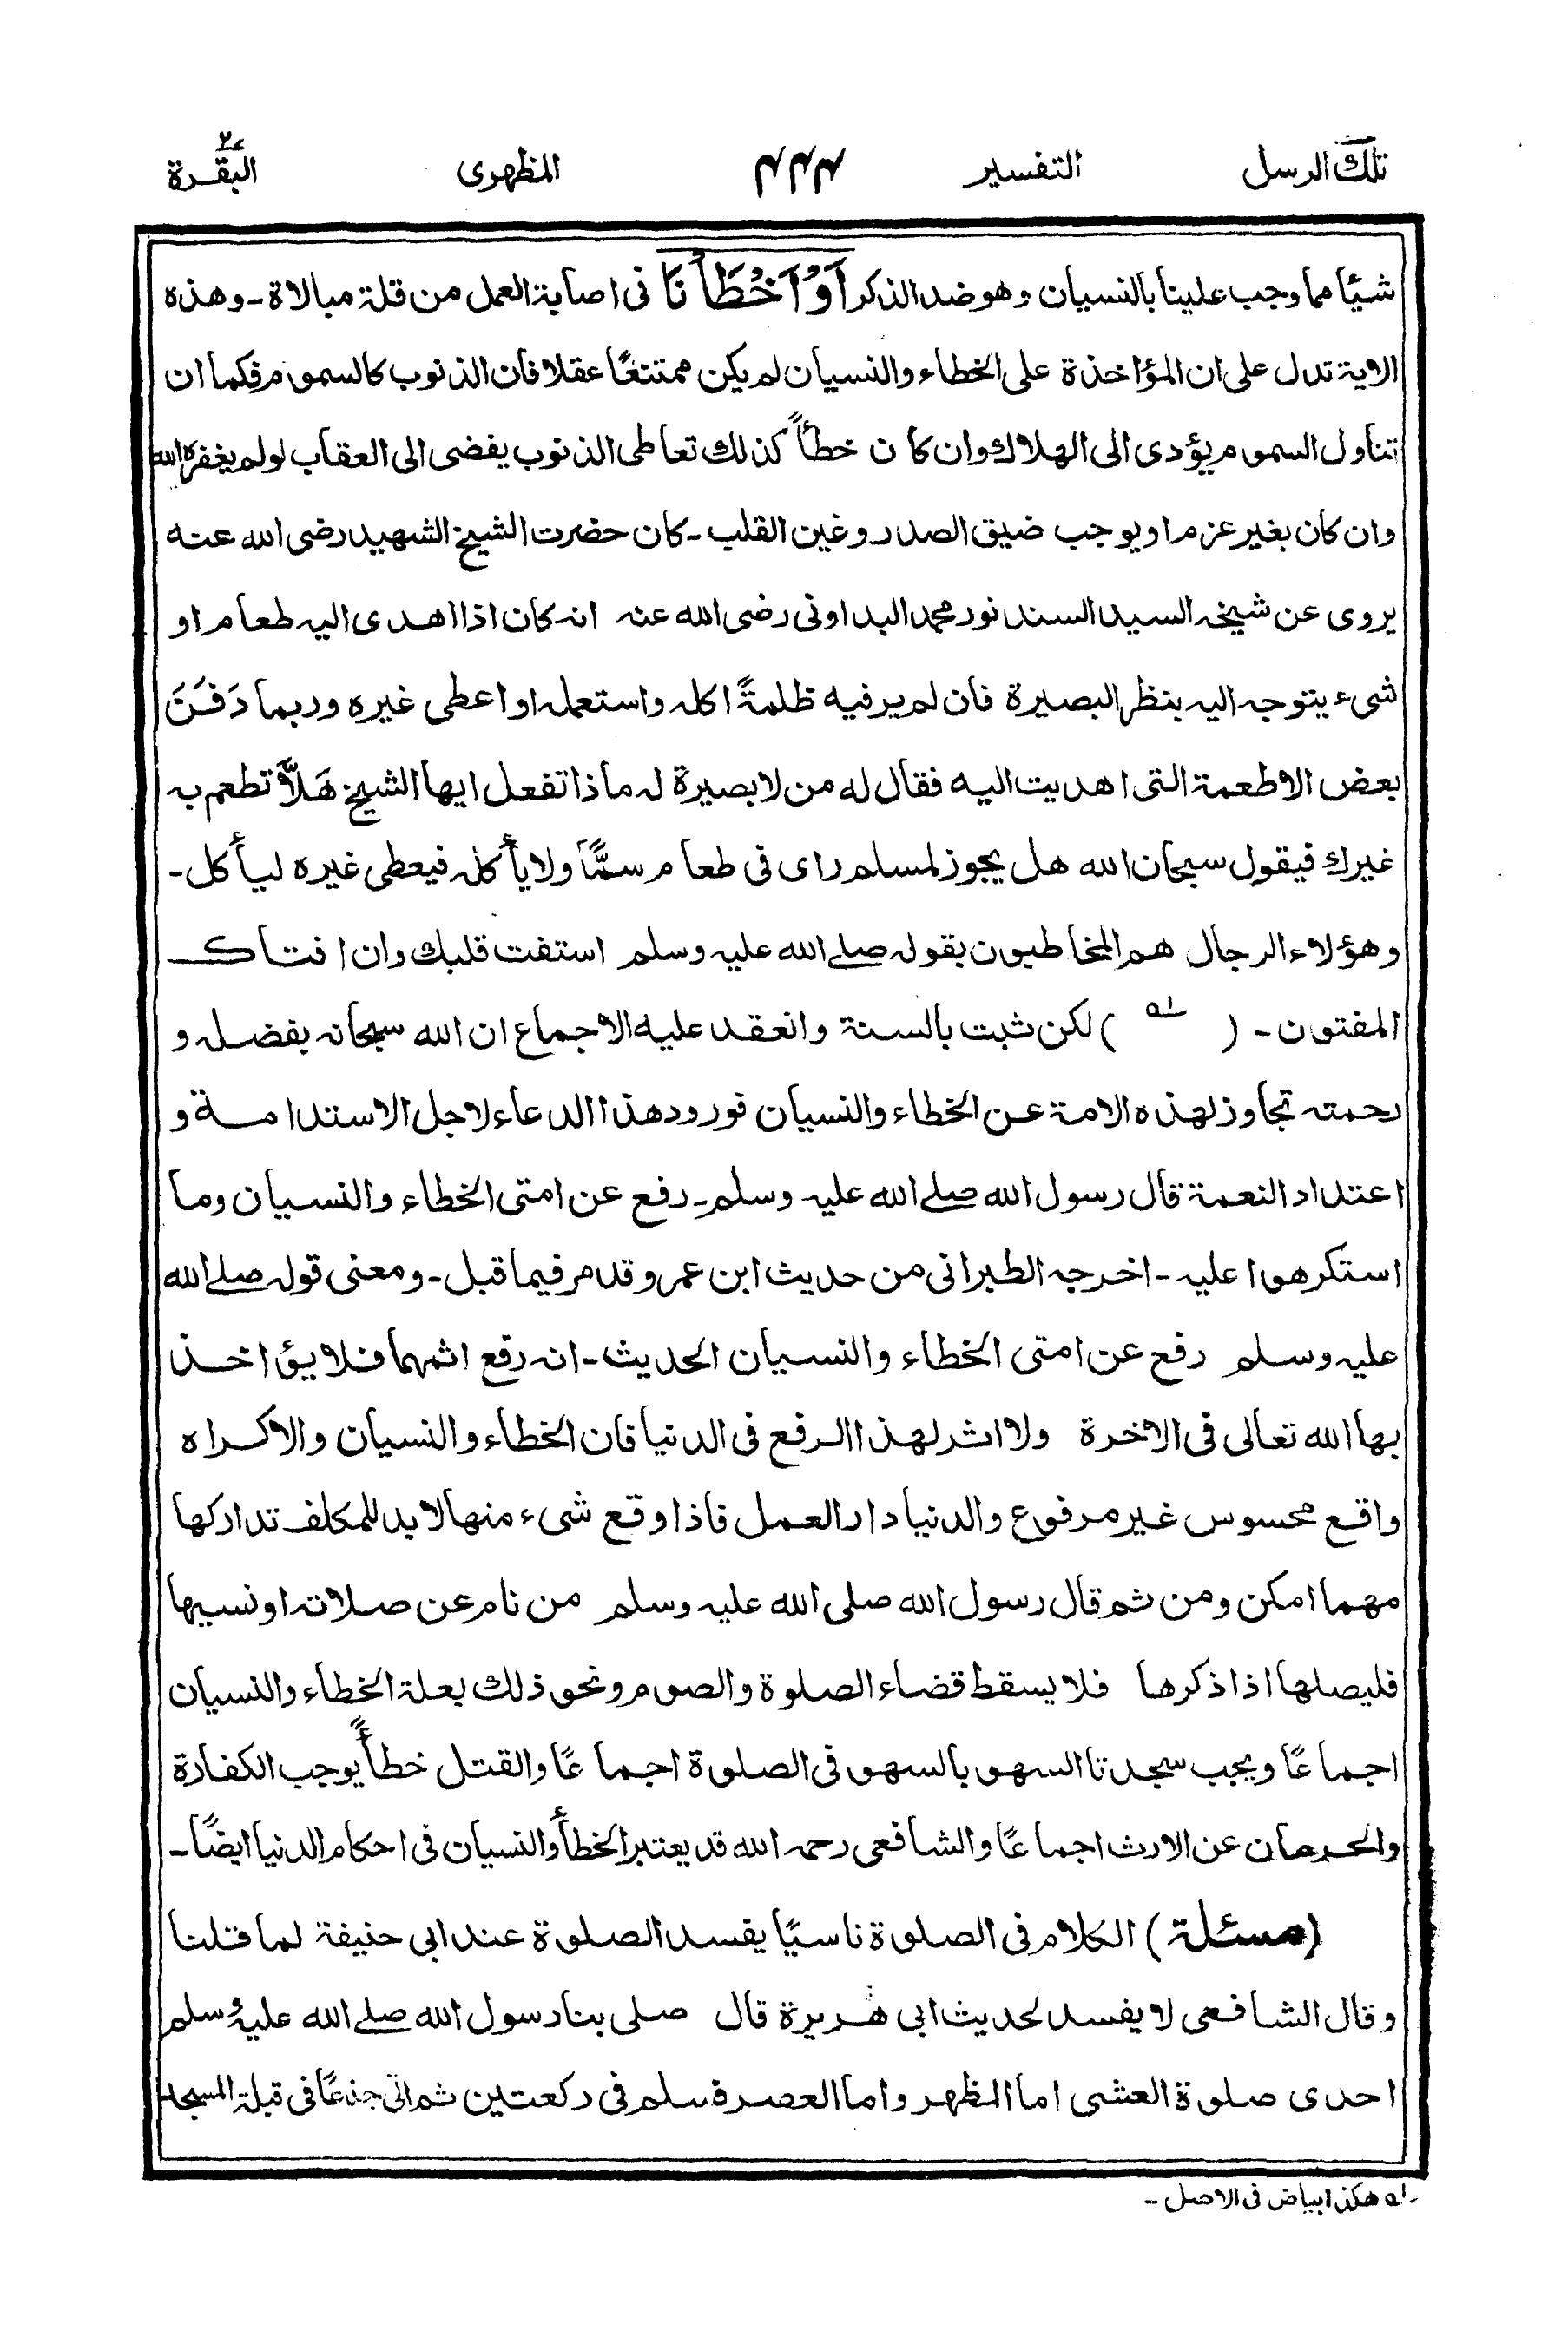 تلك الرسل التفسير ٤٤٤ المظهرى البقرة ٢
شيئا مما وجب علينا بالنسيان وهو ضد الذكر اَوْ اَخْطَأْنَا فى اصابة العمل من قلة مبالاة - وهذه
الاية تدل على ان المؤاخذة على الخطاء والنسيان لم يكن ممتنعًا عقلا فان الذنوب كالسموم فكما ان
تناول السموم يؤدى الى الهلاك وان كان خطأً كذلك تعاطى الذنوب يفضى الى العقاب لو لم يغفره الله
وان كان بغير عزم او يوجب ضيق الصدر وغين القلب - كان حضرت الشيخ الشهيد رضى الله عنه
يروى عن شيخه السيد السند نور محمد البداونى رضى الله عنه انه كان اذا اهدى اليه طعام او
شىء يتوجه اليه بنظر البصيرة فان لم ير فيه ظلمةً اكله واستعمله او اعطى غيره وربما دَفَنَ
بعض الاطعمة التى اهديت اليه فقال له من لا بصيرة له ماذا تفعل ايها الشيخ هَلَّا تطعم به
غيرك فيقول سبحان الله هل يجوز لمسلم راى فى طعام سمًّا ولا يأكله فيعطى غيره ليأكل -
وهؤلاء الرجال هم المخاطبون بقوله صلے الله عليه وسلم استفت قلبك وان افتاك
المفتون - ( ـ١ه ) لكن ثبت بالسنة وانعقد عليه الاجماع ان الله سبحانه بفضله و
رحمته تجاوز لهذه الامة عن الخطاء والنسيان فورود هذا الدعاء لاجل الاستدامة و
اعتداد النعمة قال رسول الله صلے الله عليه وسلم - رفع عن امتى الخطاء والنسيان وما
استكرهوا عليه - اخرجه الطبرانى من حديث ابن عمر وقد مر فيما قبل - ومعنى قوله صلے الله
عليه وسلم رفع عن امتى الخطاء والنسيان الحديث - انه رفع اثمهما فلا يؤاخذ
بها الله تعالى فى الاخرة ولا اثر لهذا الرفع فى الدنيا فان الخطاء والنسيان والاكراه
واقع محسوس غير مرفوع والدنيا دار العمل فاذا وقع شىء منها لا بد للمكلف تداركها
مهما امكن ومن ثم قال رسول الله صلى الله عليه وسلم من نام عن صلاته او نسيها
فليصلها اذا ذكرها فلا يسقط قضاء الصلوة والصوم ونحو ذلك بعلة الخطاء والنسيان
اجماعًا ويجب سجدتا السهو بالسهو فى الصلوة اجماعًا والقتل خطأً يوجب الكفارة
والحرمان عن الارث اجماعًا والشافعى رحمه الله قد يعتبر الخطأ والنسيان فى احكام الدنيا ايضًا -
(مسئلة) الكلام فى الصلوة ناسيًا يفسد الصلوة عند ابى حنيفة لما قلنا
وقال الشافعى لا يفسد لحديث ابى هريرة قال صلى بنا رسول الله صلے الله عليه وسلم
احدى صلوة العشى اما الظهر واما العصر فسلم فى ركعتين ثم اتى جذعًا فى قبلة المسجد
ـ١ه هكذا بياض فى الاصل -